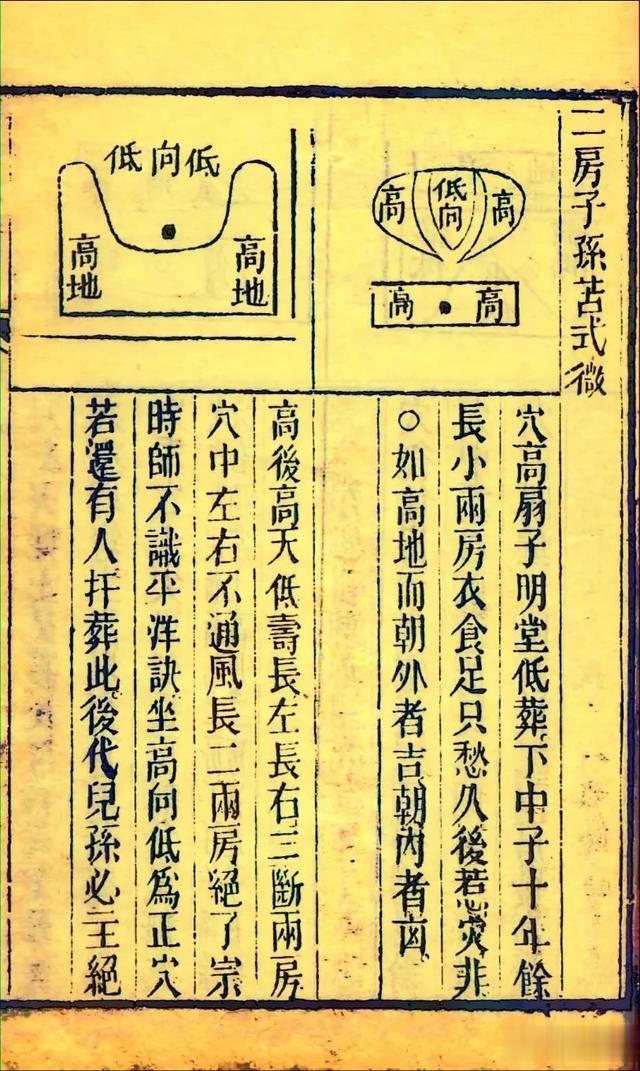 二房子孫苦式微
高 低向 高
高 高
穴高扇子明堂低葬下中子十年餘
長小兩房衣食足只愁久後惹災非
○如高地而朝外者吉朝內者凶
低向低
高地
高地
高後高天低壽長左長右三斷兩房
穴中左右不通風長二兩房絕了宗
時師不識平洋訣坐高向低為正穴
若還有人扦葬此後代兒孫必主絕